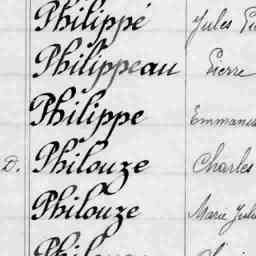 Philippé Jules
Philippeau Pierre
Philippe
D. Philouze Charles
Philouze Marie